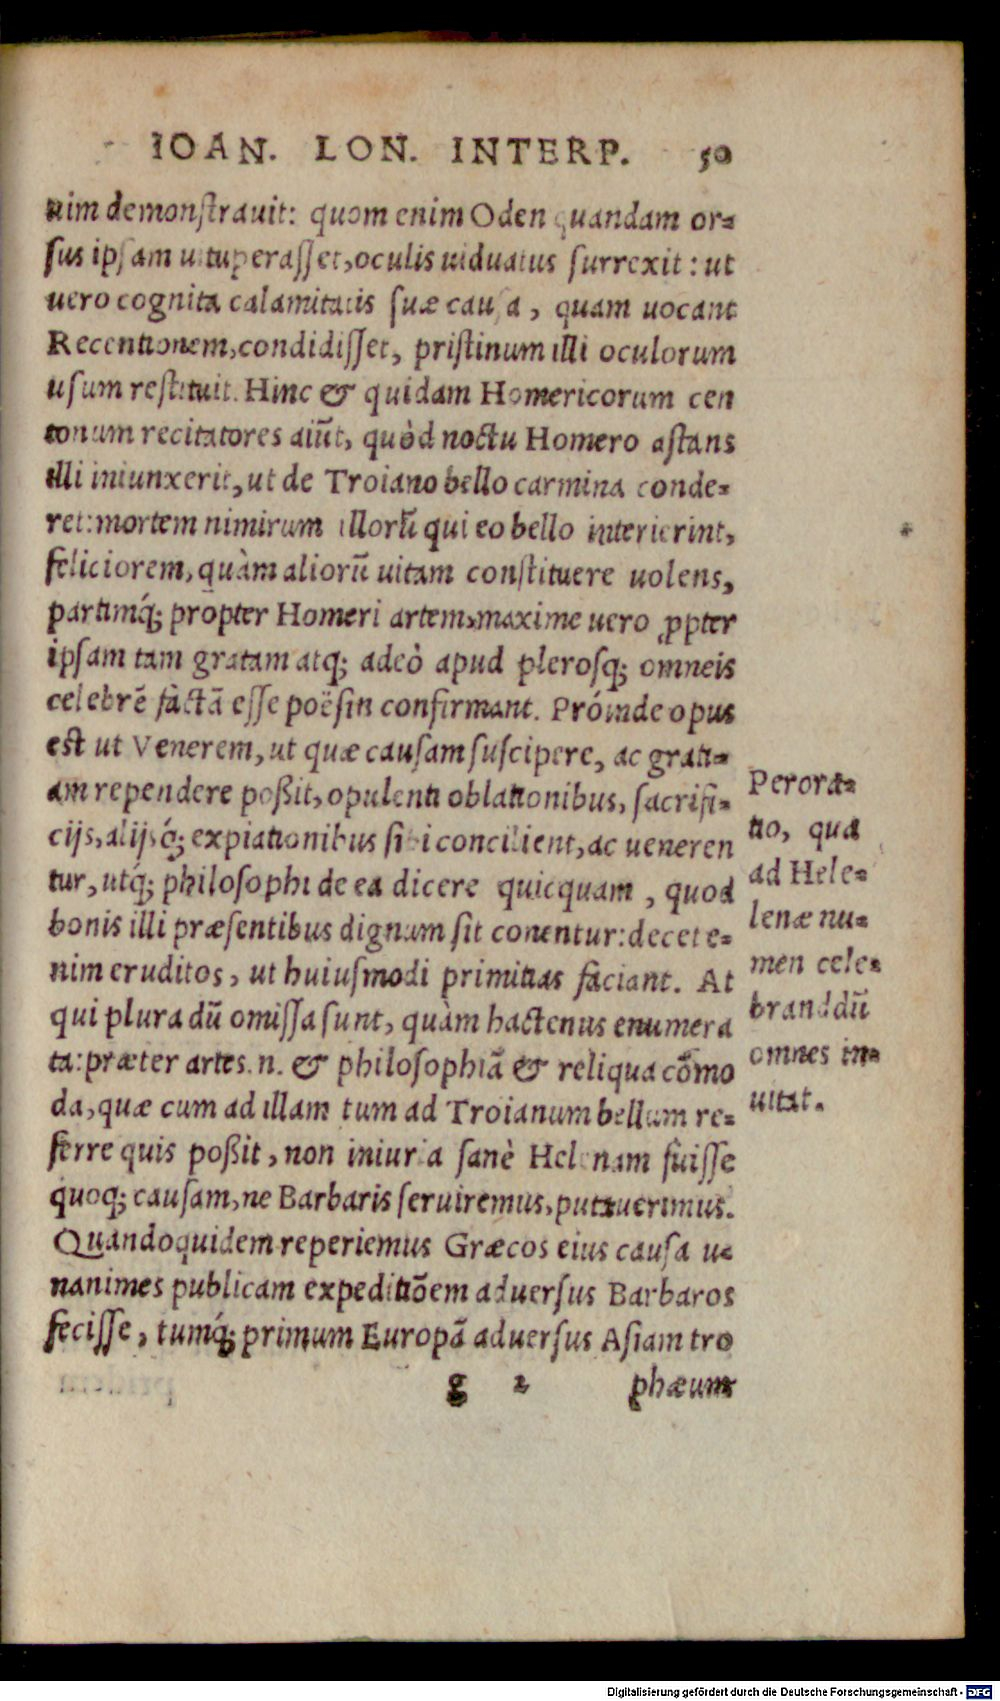 IOAN. LON. INTERP. 50
nim demonstrauit: quom enim Oden quandam or-
sus ipsam uituperasset, oculis uiduatus surrexit: ut
uero cognita calamitatis suæ causa, quam uocant
Recentionem, condidisset, pristinum illi oculorum
usum restituit. Hinc & quidam Homericorum cen
tonum recitatores aiūt, quòd noctu Homero astans
illi iniunxerit, ut de Troiano bello carmina conde-
ret: mortem nimirum illorū qui eo bello interierint,
feliciorem, quàm aliorū uitam constituere uolens,
partimq́; propter Homeri artem, maxime uero ꝓpter
ipsam tam gratam atq; adeò apud plerosq; omneis
celebrē factā esse poësin confirmant. Próinde opus
est ut Venerem, ut quæ causam suscipere, ac grati-
am rependere poßit, opulenti oblationibus, sacrifi-
cijs, alijsq́; expiationibus sibi concilient, ac ueneren
tur, utq́; philosophi de ea dicere quicquam, quod
bonis illi præsentibus dignum sit conentur: decet e-
nim eruditos, ut huiusmodi primitias faciant. At
qui plura dū omissa sunt, quàm hactenus enumera
ta: præter artes.n. & philosophiā & reliqua cōmo
da, quæ cum ad illam tum ad Troianum bellum re-
ferre quis poßit, non iniuria sanè Helenam fuisse
quoq; causam, ne Barbaris seruiremus, putauerimus.
Quandoquidem reperiemus Græcos eius causa u-
nanimes publicam expeditiōem aduersus Barbaros
fecisse, tumq́; primum Europā aduersus Asiam tro
g 2 phæum
Perora-
tio, qua
ad Hele-
lenæ nu-
men cele-
brandū
omnes in-
uitat.
Digitalisierung gefördert durch die Deutsche Forschungsgemeinschaft - DFG